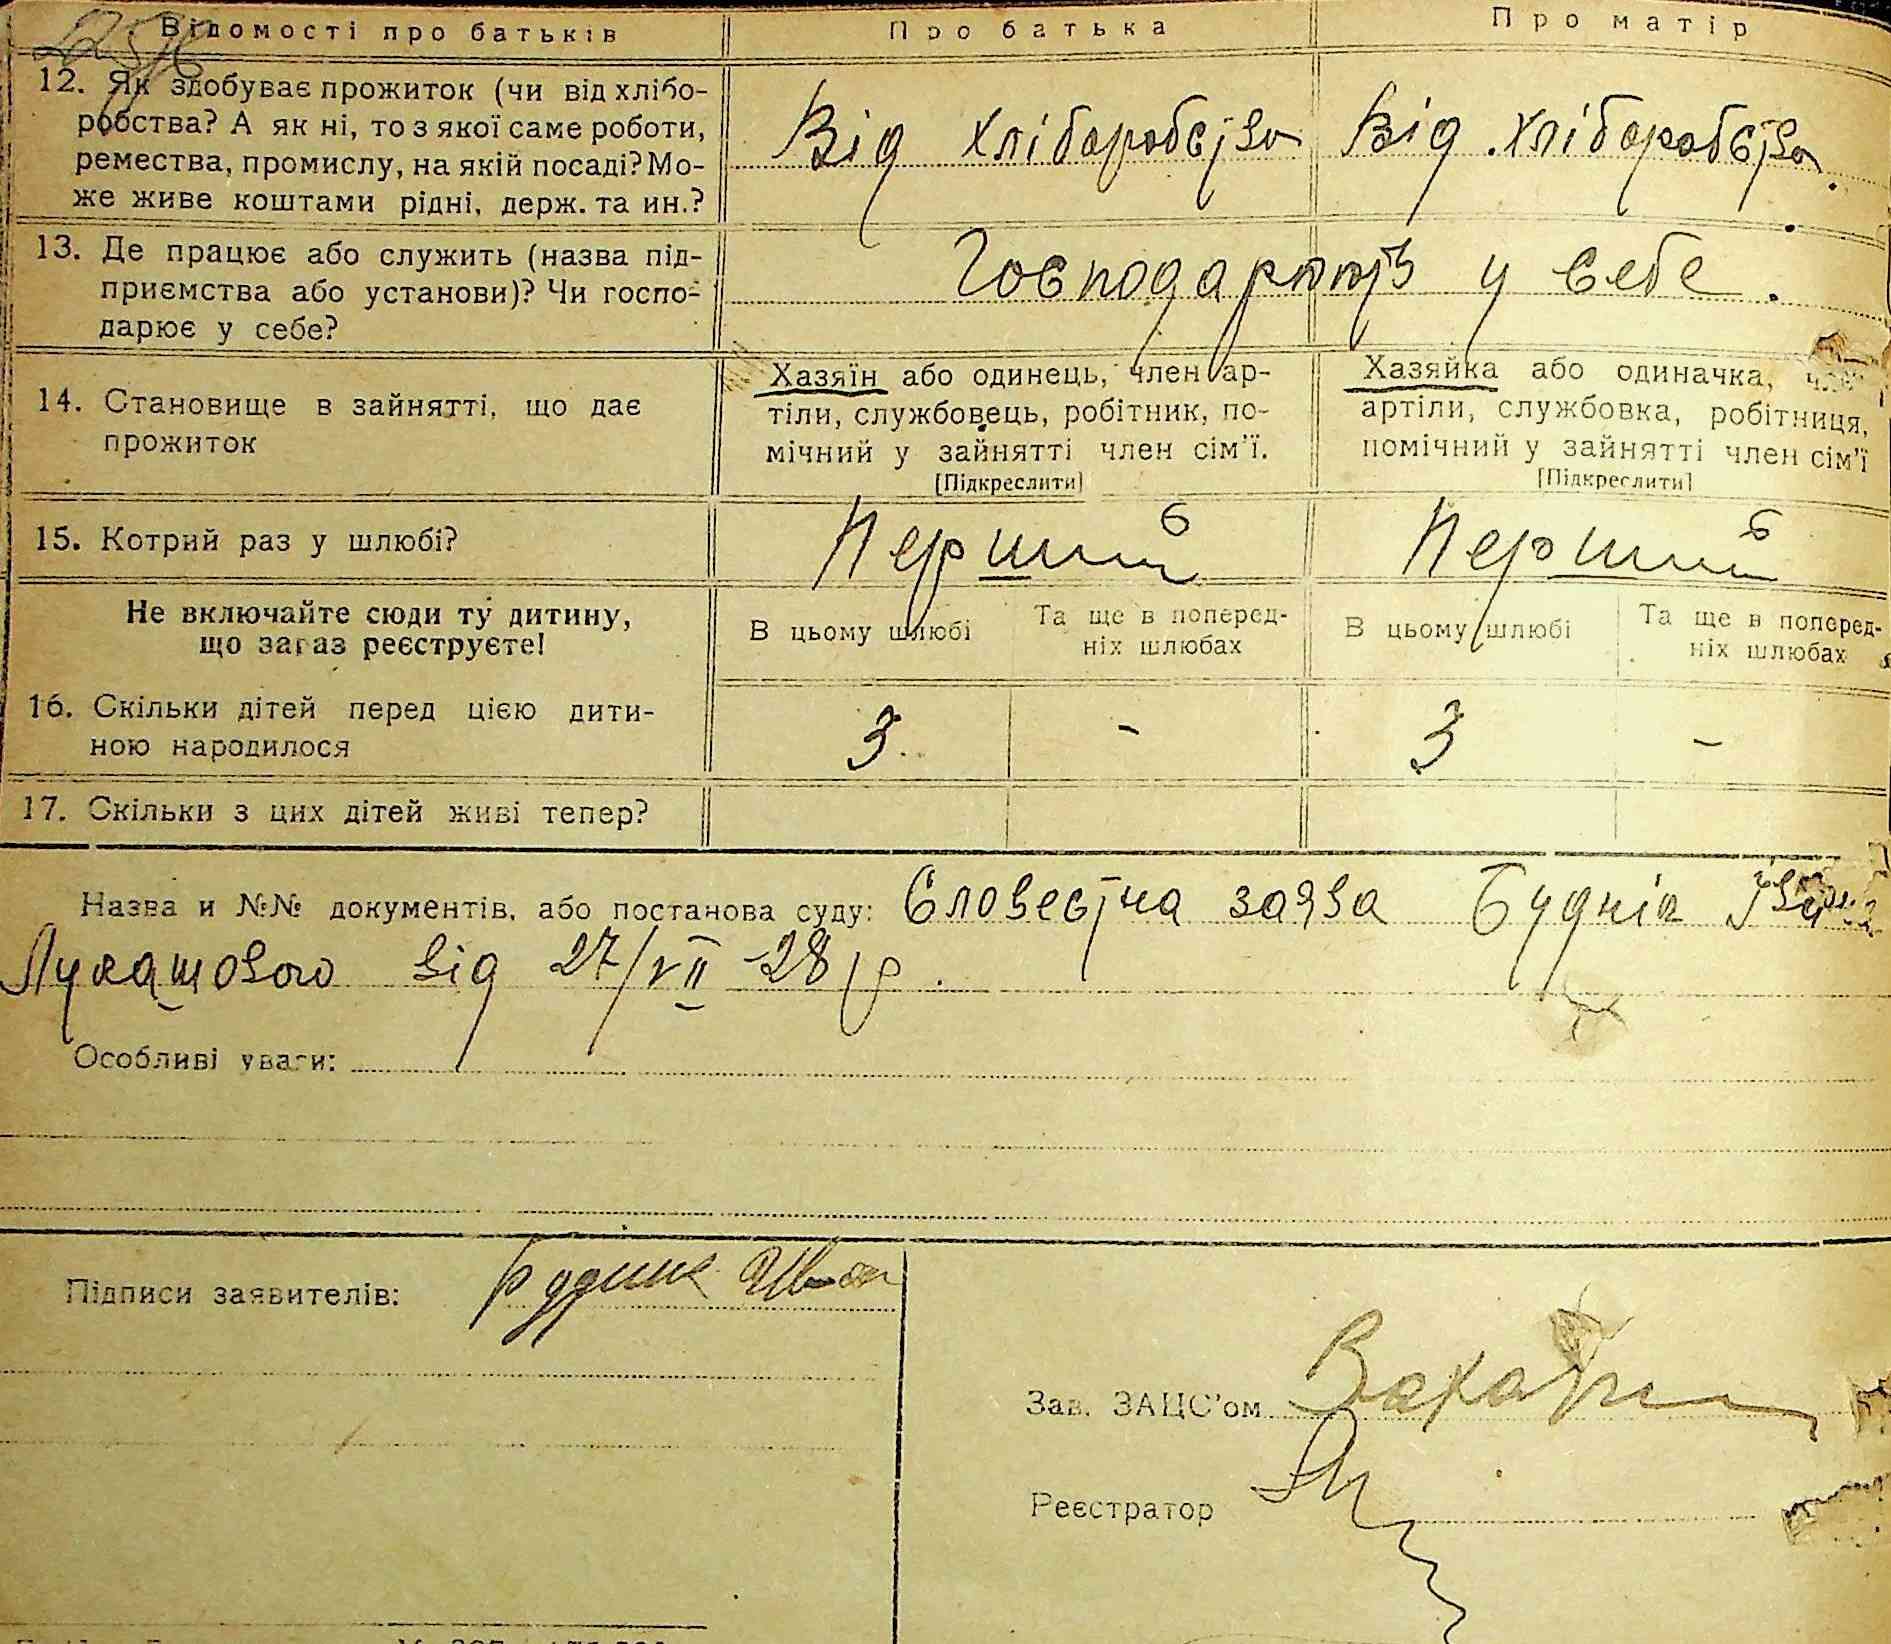 Відомості про батьків Про батька Про матір
12. Як здобуває прожиток (чи від хлібо-
робства? А як ні, то з якої саме роботи,
ремества, промислу, на якій посаді? Мо-
же живе коштами рідні, держ. та ин.?
Від хліборобства Від хліборобства.
13. Де працює або служить (назва під-
приємства або установи)? Чи госпо-
дарює у себе?
у себе.
14. Становище в зайнятті, що дає
прожиток
Хазяїн або одинець, член ар-
тіли, службовець, робітник, по-
мічний у зайнятті член сім'ї.
[Підкреслити]
Хазяйка або одиначка, член
артіли, службовка, робітниця,
помічний у зайнятті член сім'ї
[Підкреслити]
15. Котрий раз у шлюбі?
Перший Перший
Не включайте сюди ту дитину,
що зараз реєструєте!
В цьому шлюбі
Та ще в поперед-
ніх шлюбах
В цьому шлюбі
Та ще в поперед-
ніх шлюбах
16. Скільки дітей перед цією дити-
ною народилося
3 - 3 -
17. Скільки з цих дітей живі тепер?
Назва и №№ документів, або постанова суду: Словестна заява
від 27/VII-28 р.
Особливі уваги:
Підписи заявителів:
Зав. ЗАЦС'ом
Реєстратор